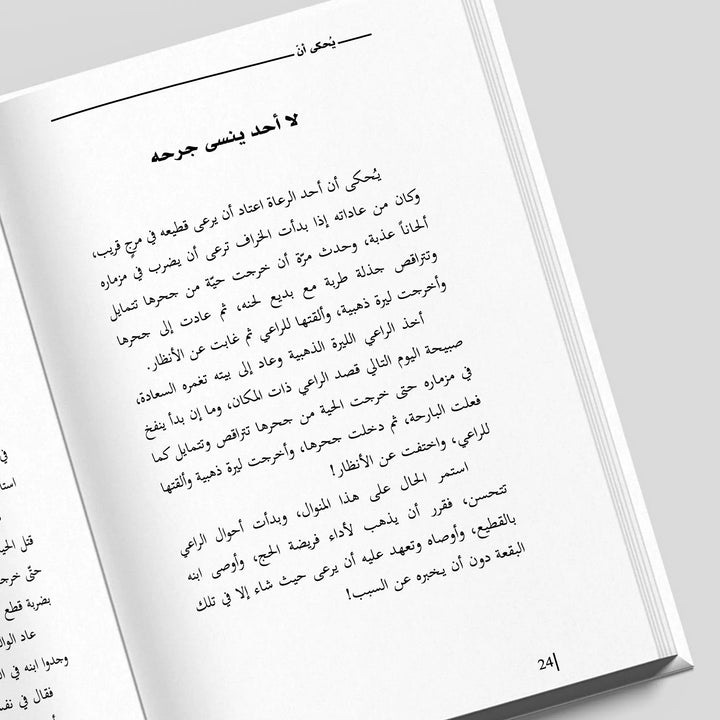 يُحكى أنّ
لا أحد ينسى جرحه
يُحكى أن أحد الرعاة اعتاد أن يرعى قطيعه في مرجٍ قريب،
وكان من عاداته إذا بدأت الخراف ترعى أن يضرب في مزماره
ألحاناً عذبة، وحدث مرّة أن خرجت حيّة من جحرها تتمايل
وتتراقص جذلة طربة مع بديع لحنه، ثم عادت إلى جحرها
وأخرجت ليرة ذهبية، وألقتها للراعي ثم غابت عن الأنظار.
أخذ الراعي الليرة الذهبية وعاد إلى بيته تغمره السعادة،
صبيحة اليوم التالي قصد الراعي ذات المكان، وما إن بدأ ينفخ
في مزماره حتى خرجت الحية من جحرها تتراقص وتتمايل كما
فعلت البارحة، ثم دخلت جحرها، وأخرجت ليرة ذهبية وألقتها
للراعي، واختفت عن الأنظار!
استمر الحال على هذا المنوال، وبدأت أحوال الراعي
تتحسن، فقرر أن يذهب لأداء فريضة الحج، وأوصى ابنه
بالقطيع، وأوصاه وتعهد عليه أن يرعى حيث شاء إلا في تلك
البقعة دون أن يخبره عن السبب!
24
في
قتل الحي
حتّى خرج
بضربة قطع
عاد الوال
وجدوا ابنه في ال
فقال في نفس